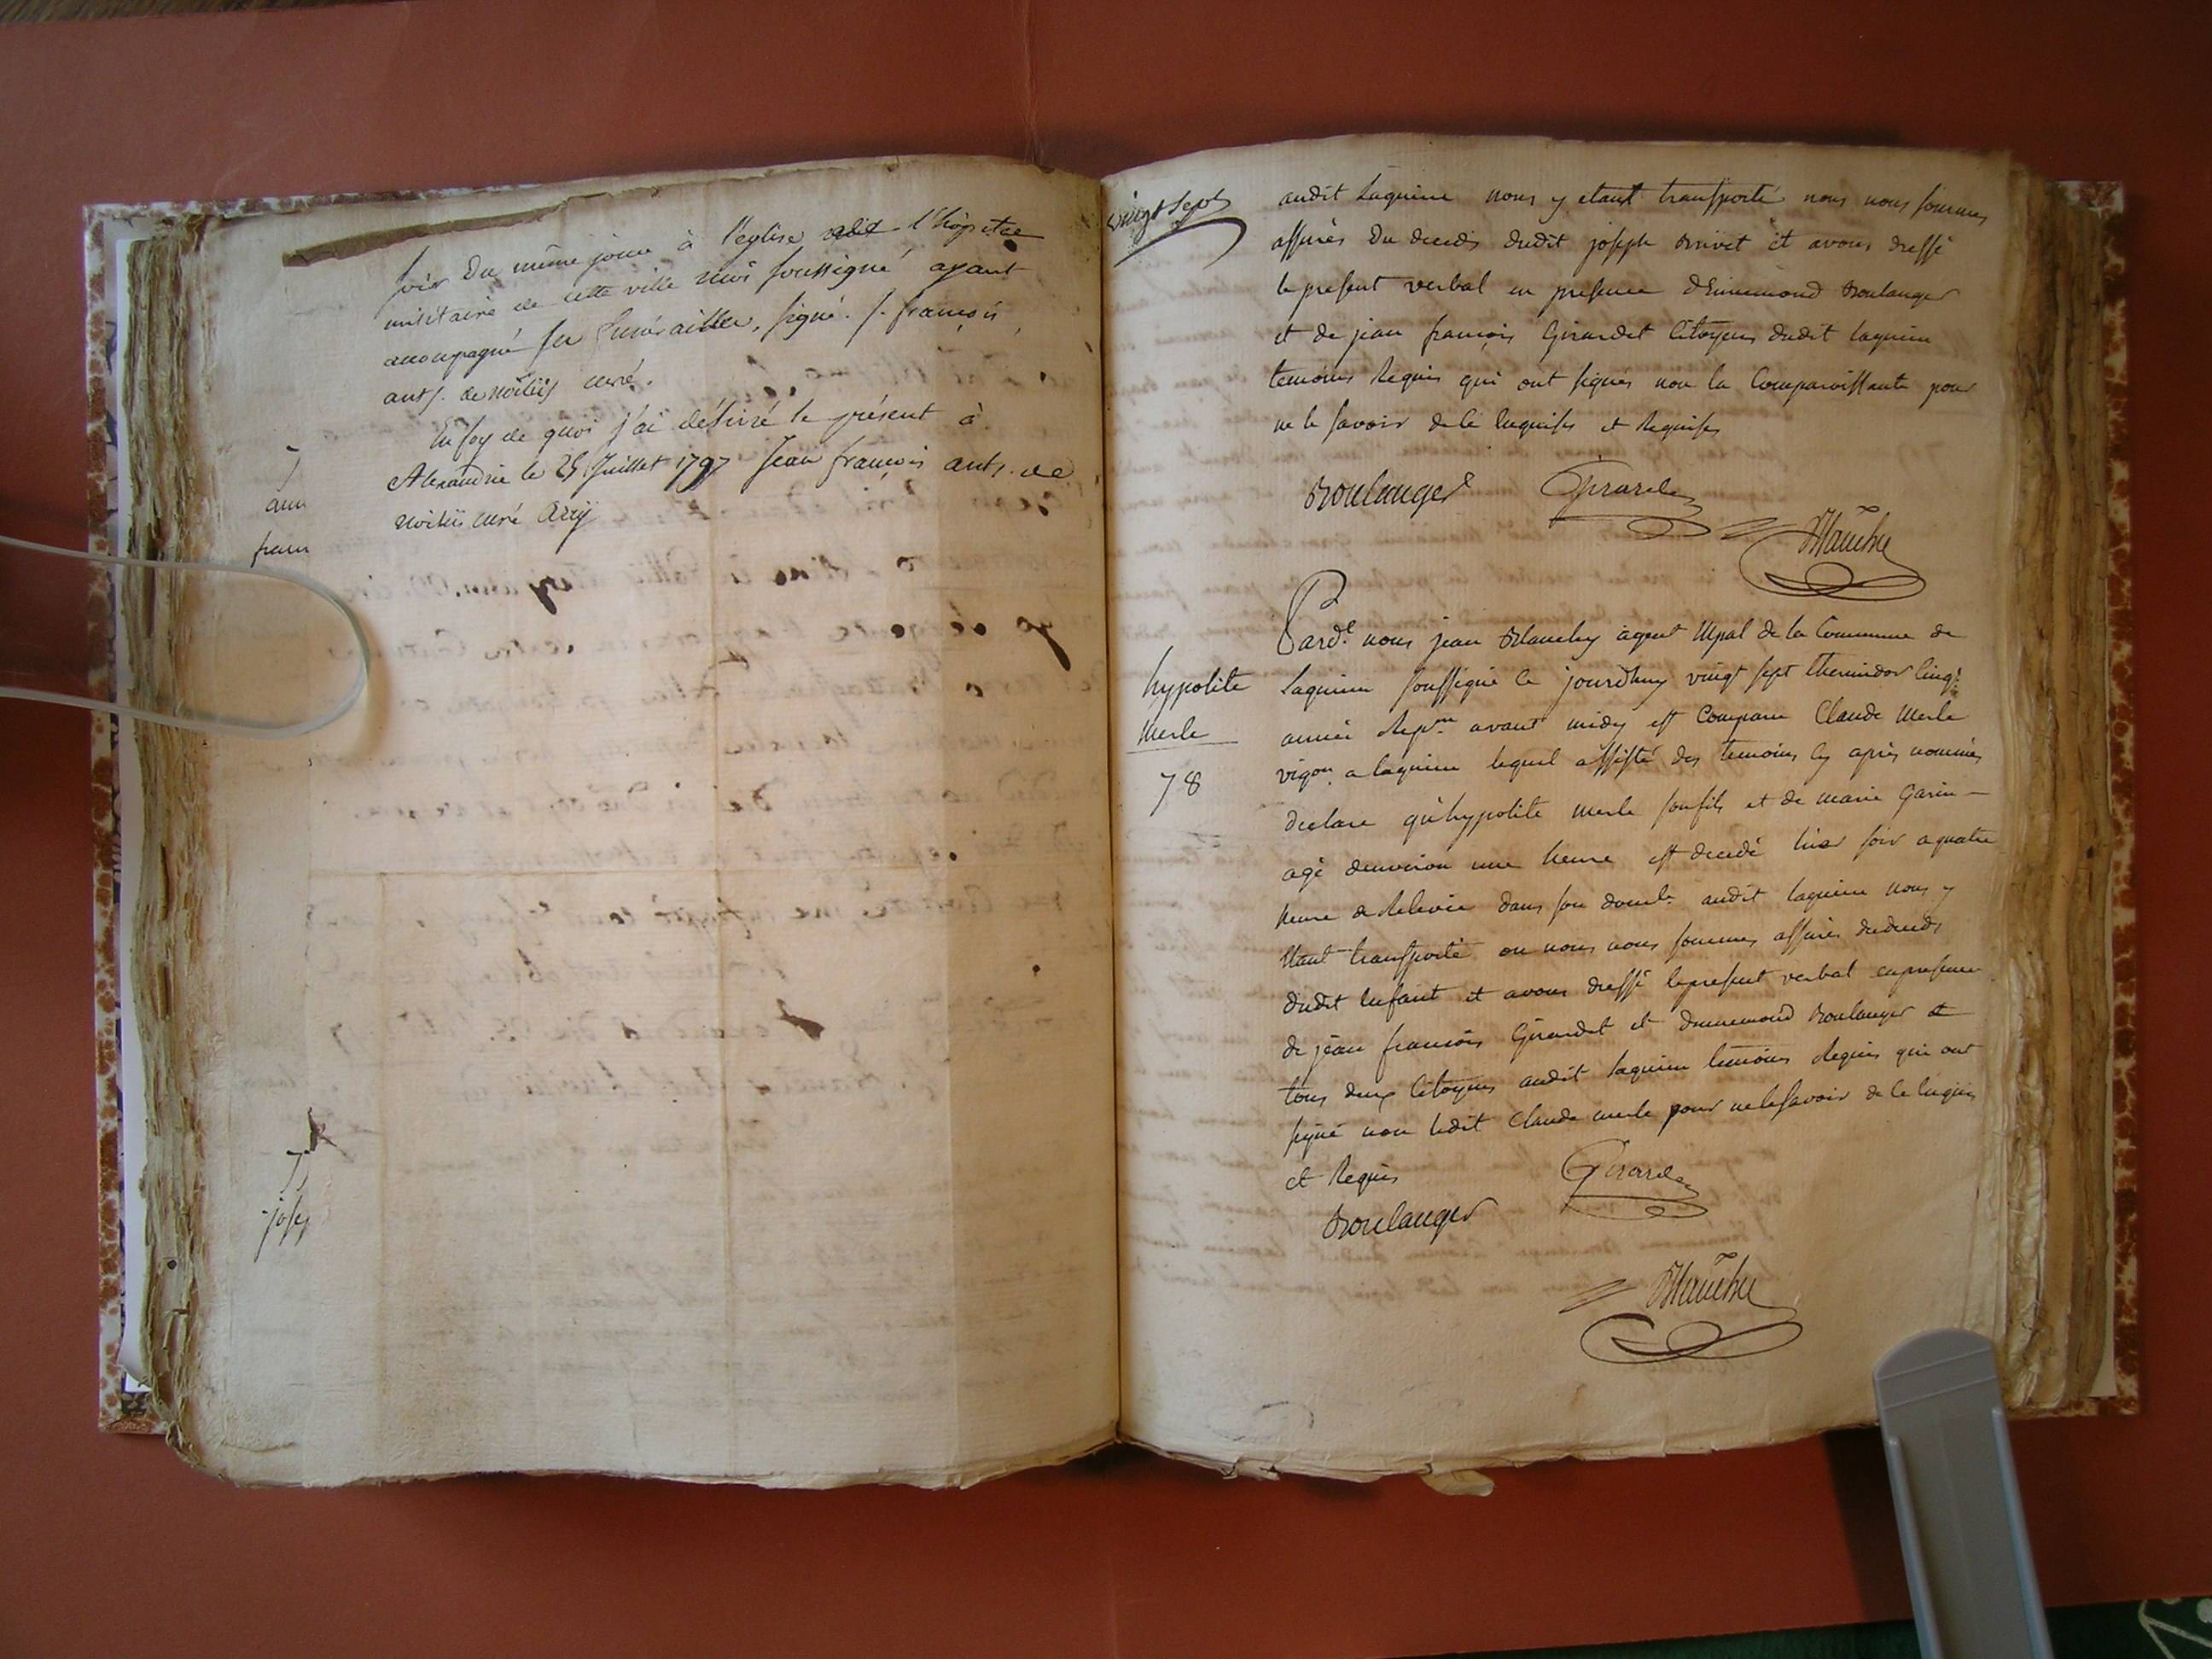 soir du même jour à l'eglise dudit l'hôpital
militaire de cette ville moi soussigné ayant
accompagné ses funérailles, signé. J. françois
ant. de curé.
En foy de quoi j'ai délivré le présent à
Alexandrie le 25 Juillet 1797 Jean françois ant. de
curé
7
ann
fran
77
josep
vingt sept
audit Laguieu nous y étant transporté nous nous sommes
assurés du deceds dudit joseph Brivet et avons dressé
le present verbal en presence d'Ennemond Boulanger
et de jean françois Girardet Citoyens dudit laguieu
temoins Requis qui ont signés non la Comparoissante pour
ne le savoir de ce enquise et Requise
Boulanger Girardet
Blanchy
Pard.t nous jean Blanchy agent Mpal de la Commune de
Laguieu soussigné ce jourdhuy vingt sept thermidor cinq.e
année Rep.ne avant midy est Comparu Claude Merle
vigon. a laguieu lequel assisté des temoins cy après nommés
declare qu'hypolite merle son fils et de marie Garin –
agé denviron une heure est decedé hier soir a quatre
heure de Relevée dans son domle. audit laguieu nous y
étant transporté ou nous nous sommes assurés du deceds
dudit enfant et avons dressé le present verbal en presence
de jean francois Girardet et dennemond Boulanger
tous deux Citoyens audit laguieu temoins Requis qui ont
signé non ledit Claude merle pour ne le savoir de ce enquis
et Requis
Girardet
Boulanger
Blanchy
hypolite
Merle
78